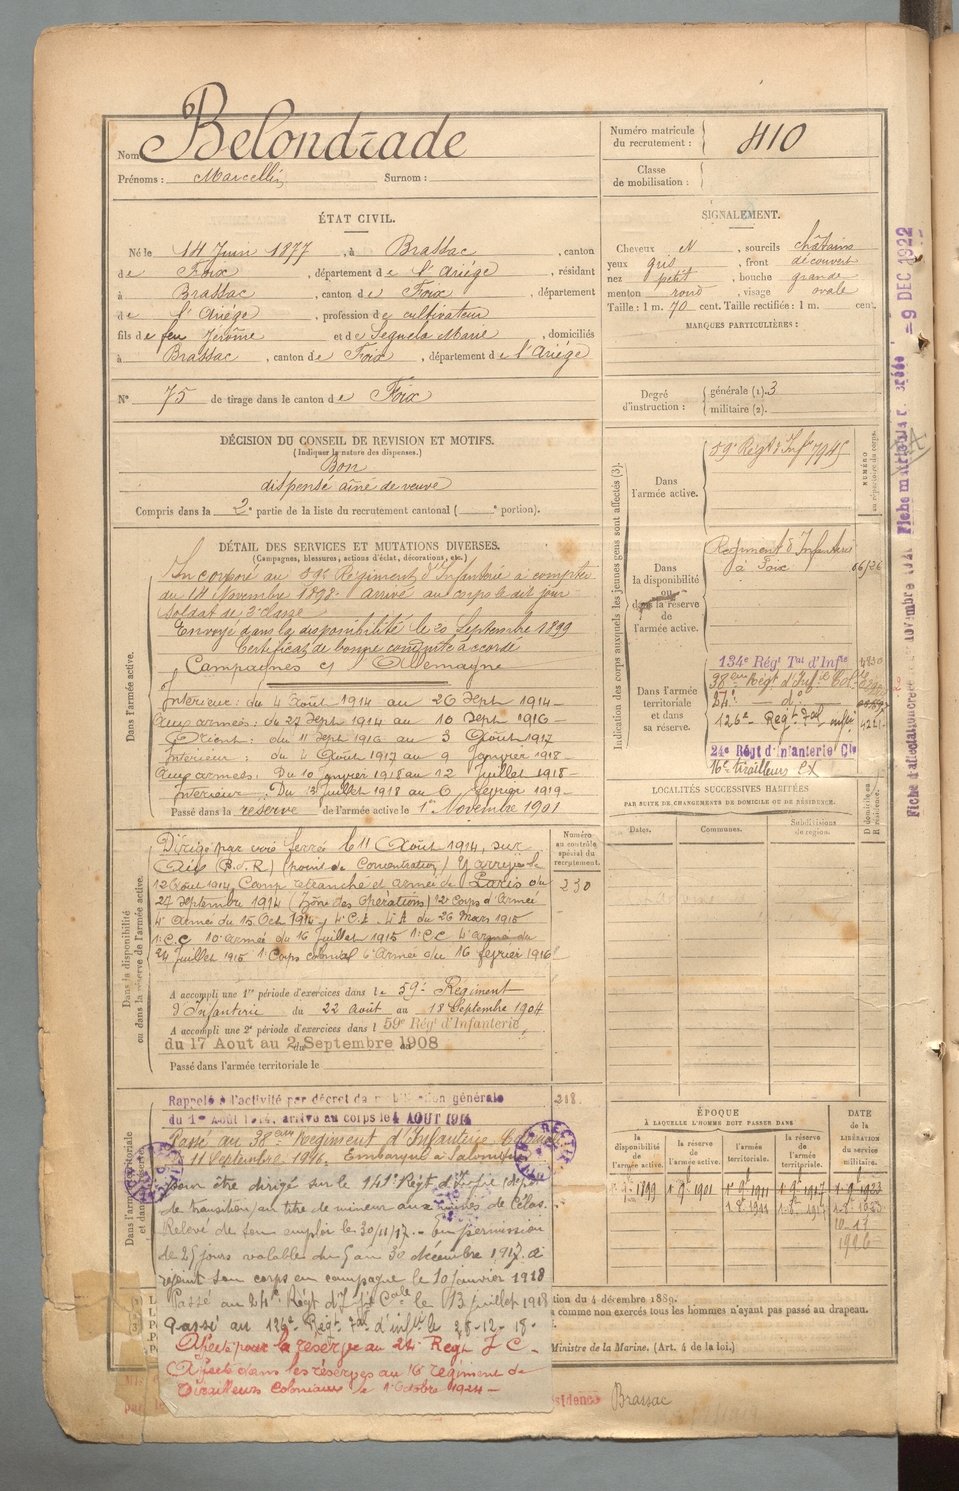 Nom Belondrade
Prénoms : Marcellin Surnom :
Numéro matricule du recrutement : 410
Classe de mobilisation :
ÉTAT CIVIL.
Né le 14 Juin 1877, à Brassac, canton
de Foix, département de l'Ariège, résidant
à Brassac, canton de Foix, département
de l'Ariège, profession de cultivateur
fils de feu Jérôme et de Seguela Marie, domiciliés
à Brassac, canton de Foix, département de l'Ariège
N° 75 de tirage dans le canton de Foix
SIGNALEMENT.
Cheveux N, sourcils châtains
yeux gris, front découvert
nez petit, bouche grande
menton rond, visage ovale
Taille : 1 m. 70 cent. Taille rectifiée : 1 m. cent.
MARQUES PARTICULIÈRES :
Degré d'instruction : générale (1). 3
militaire (2).
DÉCISION DU CONSEIL DE REVISION ET MOTIFS.
(Indiquer la nature des dispenses.)
Bon
dispensé aîné de veuve
Compris dans la 2e partie de la liste du recrutement cantonal ( e portion).
DÉTAIL DES SERVICES ET MUTATIONS DIVERSES.
(Campagnes, blessures, actions d'éclat, décorations, etc.)
Dans l'armée active.
Incorporé au 59e Régiment d'Infanterie à compter
du 14 Novembre 1898. arrivé au corps le dit jour
soldat de 2e classe
Envoyé dans la disponibilité le 20 Septembre 1899
Certificat de bonne conduite accordé
Campagnes c/ Allemagne
Intérieur : du 4 Août 1914 au 26 Sept 1914 -
Aux armées : du 27 Sept 1914 au 10 Sept 1916 -
Orient : du 11 Sept 1916 au 3 Août 1917
Intérieur : du 4 Août 1917 au 9 Janvier 1918
Aux armées : Du 10 Janvier 1918 au 12 Juillet 1918 -
Intérieur : Du 13 Juillet 1918 au 6 février 1919 -
Passé dans la réserve de l'armée active le 1er Novembre 1901
Dans la disponibilité ou dans la réserve de l'armée active.
Dirigé par voie ferrée le 11 Août 1914, sur
Aix (B.d.R) (point de Concentration) Y arrivé le
12 Août 1914, Camp retranché et armée de Paris du
27 Septembre 1914 (Zône des Opérations)
4e armée du 15 Oct 1914, 4e C.A. 4e A du 26 Mars 1915
1er C.C 10e Armée du 16 Juillet 1915 1er C.C
24 Juillet 1915 1er Corps colonial 6e Armée du 16 février 1916
Numéro au contrôle spécial du recrutement.
230
A accompli une 1re période d'exercices dans le 59e Régiment
d'Infanterie du 22 Août au 18 Septembre 1904
A accompli une 2e période d'exercices dans l 59e Régt d'Infanterie,
du 17 Aout au 2 Septembre 1908
Passé dans l'armée territoriale le
Dans l'armée territoriale
Rappelé à l'activité par décret de mobilisation générale
du 1er Août 1914, arrivé au corps le 4 AOUT 1914
Passé au 38eme Régiment d'Infanterie Coloniale
11 Septembre 1916. Embarqué à Salonique
pour être dirigé sur le 141e Régt d'Infie (dépôt
de transition) au titre de mineur aux mines de
Relevé de son emploi le 30/11/17. - En permission
de 25 jours valables du 5 au 30 décembre 1917. a
rejoint son corps en campagne le 10 janvier 1918
Passé au 24e Régt d'I Cale le 13 juillet 1918
Passé au 126e Régt d'infie le 28-12-18.
Affecté pour la réserve au 24e Régt I C -
Affecté dans les réserves au 16e régiment de
Tirailleurs Coloniaux le 1er Octobre 1924 -
Indication des corps auxquels les jeunes gens sont affectés (3).
NUMÉRO au répertoire du corps.
Dans l'armée active.
59e Régt d'Infie 7945
Dans la disponibilité ou dans la réserve de l'armée active.
Régiment d'Infanterie
à Foix
Dans l'armée territoriale et dans sa réserve.
134e Régt Tal d'Infie
38eme Régt d'Infie Cole
24e - do -
126e Régt infie 4261
24e Régt d'infanterie Cle
16e tirailleurs cx
LOCALITÉS SUCCESSIVES HABITÉES
PAR SUITE DE CHANGEMENTS DE DOMICILE OU DE RÉSIDENCE.
Dates. Communes. Subdivisions de région. D domicile ou R résidence.
ÉPOQUE
À LAQUELLE L'HOMME DOIT PASSER DANS
la disponibilité de l'armée active. la réserve de l'armée active. l'armée territoriale. la réserve de l'armée territoriale.
DATE de la LIBÉRATION du service militaire.
1er 9e 1899 1er 9e 1901 1er 9e 1911 1er 9e 1917 1-9-1923
1926
tion du 4 décembre 1889.
comme non exercés tous les hommes n'ayant pas passé au drapeau.
Ministre de la Marine. (Art. 4 de la loi.)
sidence Brassac
-9 DEC 1922